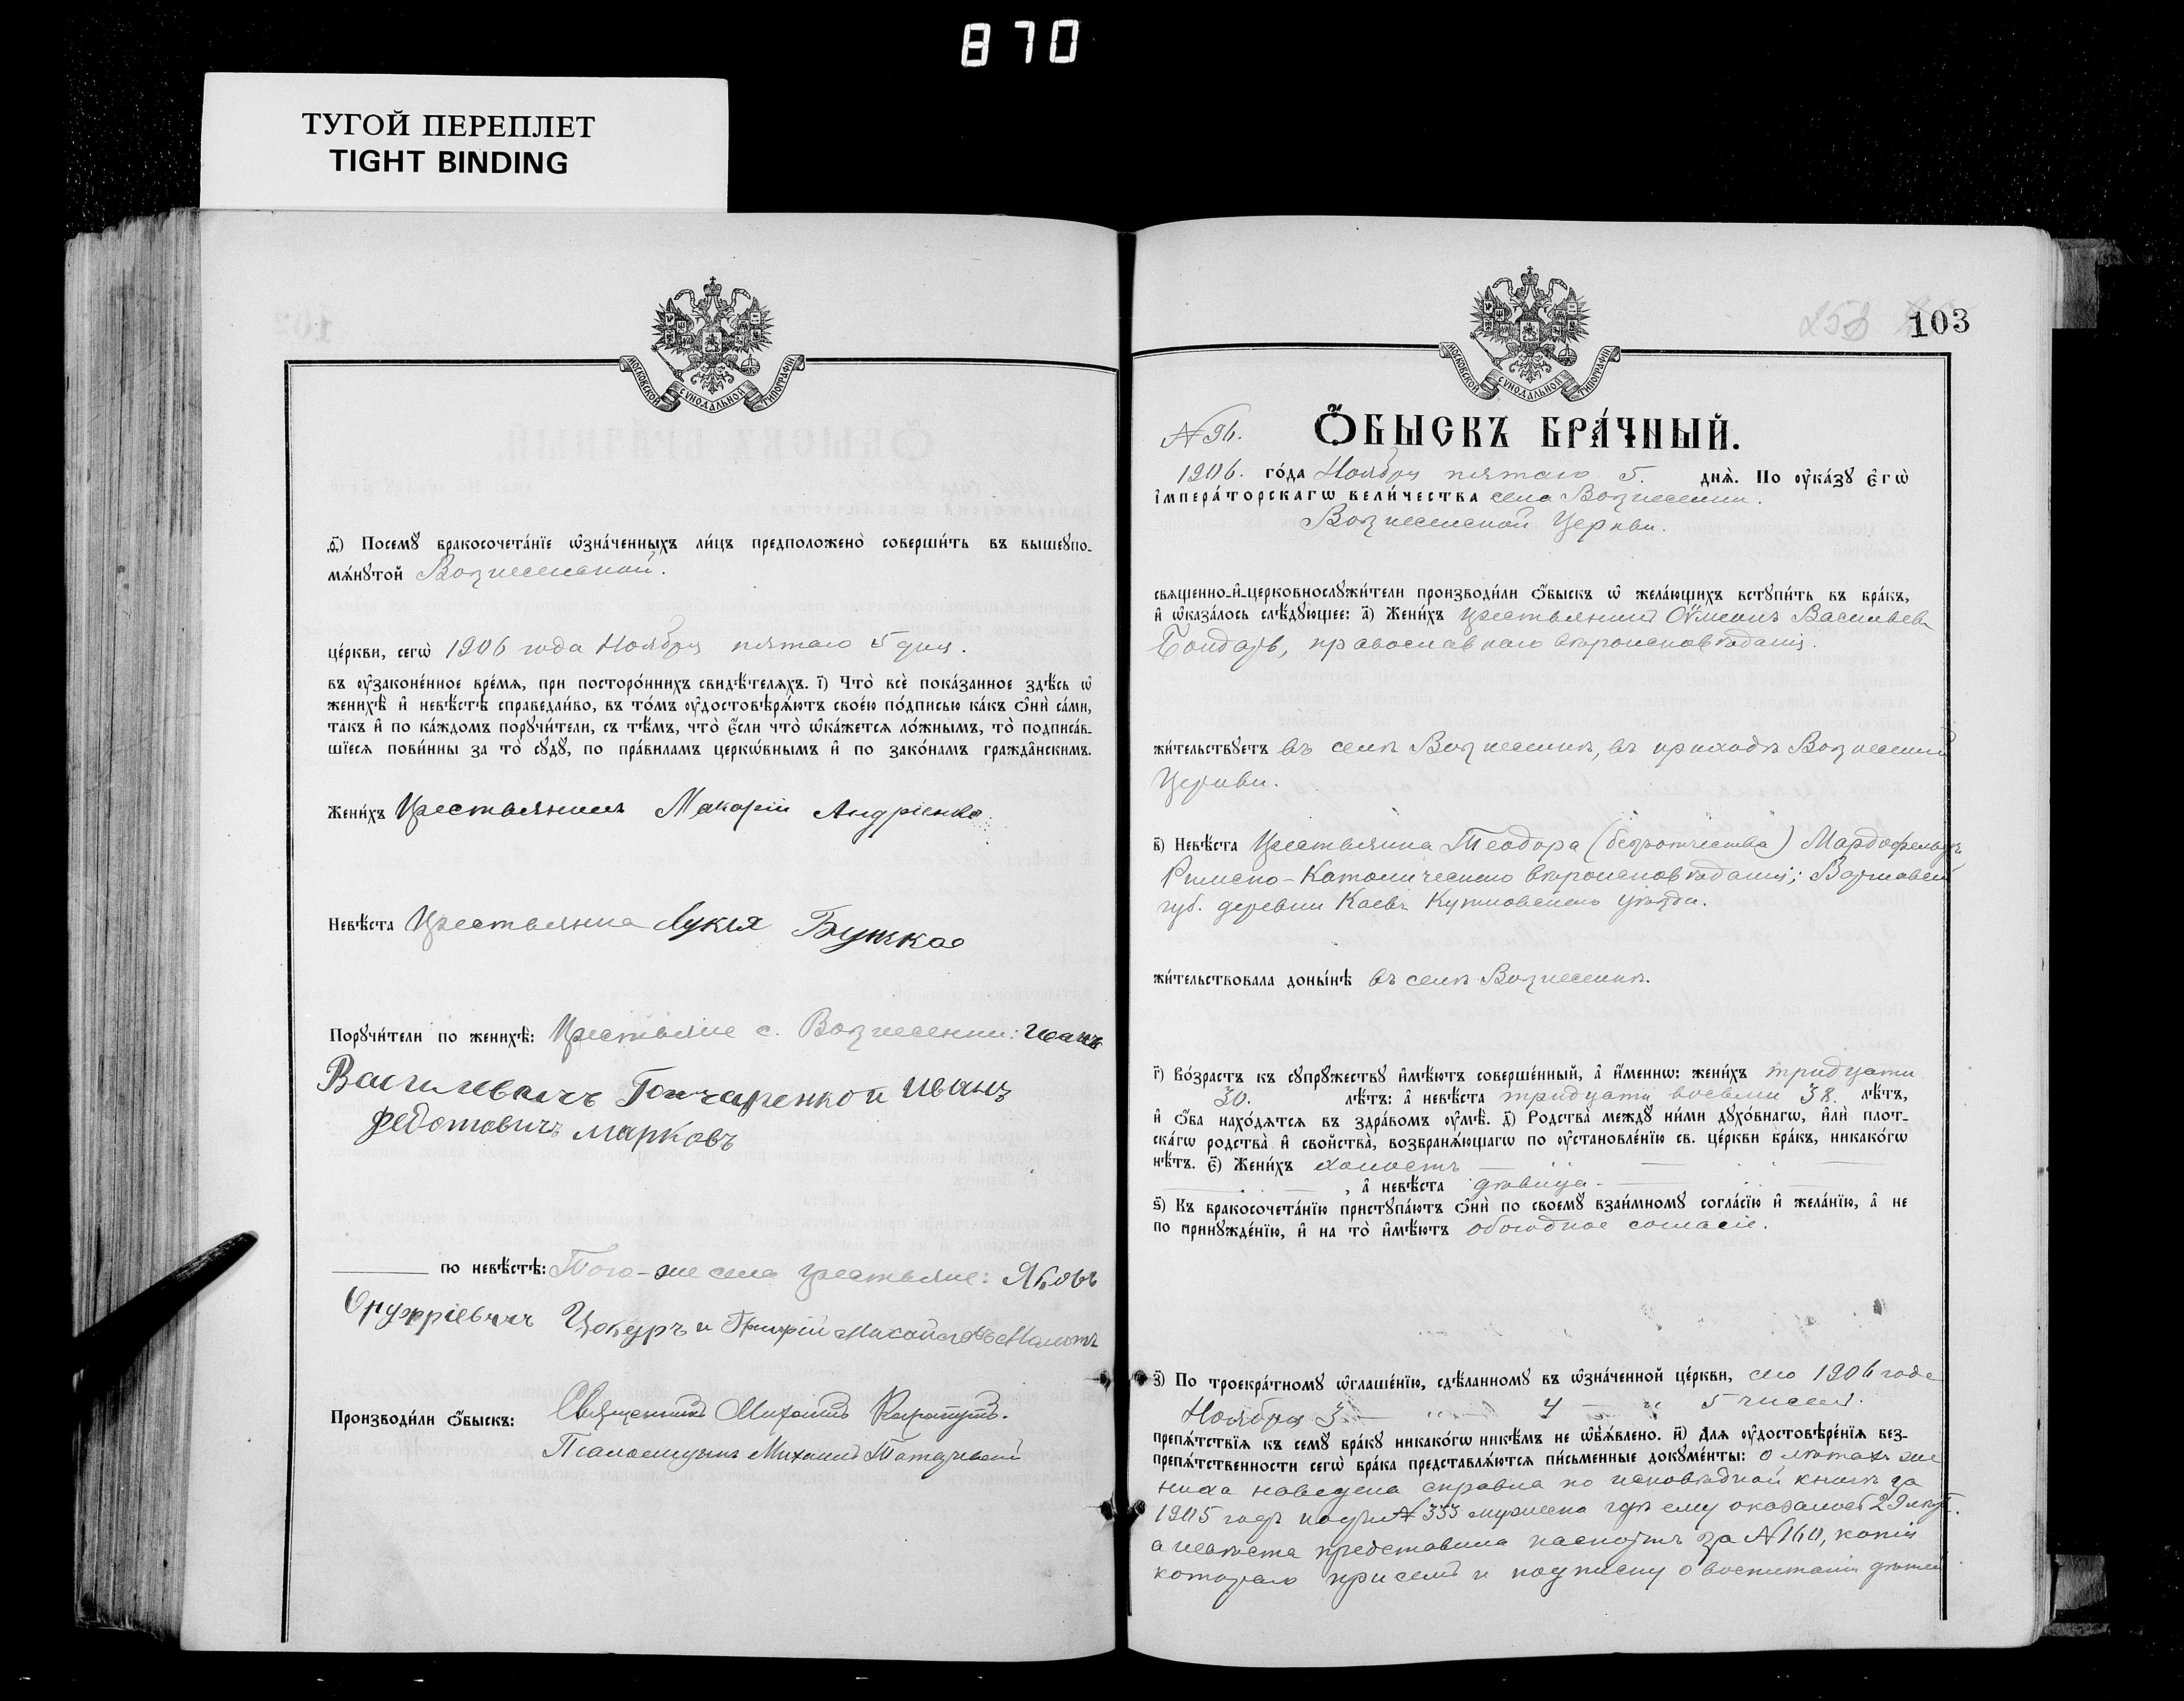 870
ТУГОЙ ПЕРЕПЛЕТ
TIGHT BINDING
МОСКОВСКОЙ СѴНОДАЛЬНОЙ ТИПОГРАФІИ
ѳ҃) Посемꙋ бракосочета́нїе ѡ҆зна́ченныхъ ли́цъ предположено̀ соверши́ть въ вышеꙋпо-
мѧ́нꙋтой Вознесенской.
це́ркви, сегѡ̀ 1906 года Ноября пятаго 5 дня.
въ ᲂу҆законе́нное вре́мѧ, при посторо́ннихъ свидѣ́телѧхъ. і҃) Что̀ всѐ пока́занное здѣ́сь ѡ҆
женихѣ̀ и҆ невѣ́стѣ справедли́во, въ то́мъ ᲂу҆достовѣрѧ́ютъ свое́ю по́дписью ка́къ ѻ҆нѝ са́ми,
та́къ и҆ по ка́ждомъ порꙋчи́тели, съ тѣ́мъ, что̀ є҆́сли что̀ ѡ҆ка́жется ло́жнымъ, то̀ подписа́в-
шїеся пови́нны за то̀ сꙋдꙋ̀, по пра́виламъ церко́внымъ и҆ по зако́намъ гражда́нскимъ.
Жени́хъ Крестьянинъ Макарій Андріенко
Невѣ́ста Крестьянка Лукія
Порꙋчи́тели по женихѣ̀: Крестьяне с. Вознесенки: Иванъ
Василевичъ Гончаренко и Иванъ
Федотовичъ Марковъ
по невѣ́стѣ: Того-же села крестьяне: Яковъ
Онуфріевичъ Цокуръ и Григорій
Производи́ли ѻ҆́быскъ: Священникъ Михаилъ
Псаломщикъ Михаилъ
103
№ 96.
Ѻ҆́БЫСКЪ БРА́ЧНЫЙ.
1906. го́да Ноября пятаго 5. днѧ̀. По ᲂу҆ка́зꙋ є҆гѡ̀
і҆мпера́торскагѡ вели́чества села Вознесенки.
Вознесенской Церкви.
свѧще́нно-и҆-церковнослꙋжи́тели производи́ли ѻ҆́быскъ ѡ҆ жела́ющихъ встꙋпи́ть въ бра́къ,
и҆ ѡ҆каза́лось слѣ́дꙋющее: а҃) Жени́хъ крестьянинъ Сѵмеонъ Васильевъ
Бондарь, православнаго вѣроисповѣданія.
жи́тельствꙋетъ въ селѣ Вознесенкѣ, въ приходѣ Вознесенской
Церкви.
в҃) Невѣ́ста Крестьянка Теодора (безотчества)
Римско-Католическаго вѣроисповѣданія; Варшавской
губ. деревни Каевъ Кутновскаго уѣзда.
жи́тельствовала доны́нѣ въ селѣ Вознесенкѣ.
г҃) Во́зрастъ къ сꙋпрꙋ́жествꙋ и҆мѣ́ютъ соверше́нный, а҆ и҆́менно: жени́хъ тридцати
30. лѣ́тъ: а҆ невѣ́ста тридцати восьми 38. лѣ́тъ,
и҆ ѻ҆́ба нахо́дѧтся въ здра́вомъ ᲂу҆мѣ̀. д҃) Родства̀ междꙋ̀ ни́ми дꙋхо́внагѡ, и҆лѝ плот-
ска́гѡ родства̀ и҆ свойства̀, возбранѧ́ющагѡ по ᲂу҆становле́нїю св. це́ркви бра́къ, никако́гѡ
нѣ́тъ. є҃) Жени́хъ холостъ
, а҆ невѣ́ста дѣвица.
ѕ҃) Къ бракосочета́нїю пристꙋпа́ютъ ѻ҆нѝ по своемꙋ̀ взаи́мномꙋ согла́сїю и҆ жела́нїю, а҆ не
по принꙋжде́нїю, и҆ на то̀ и҆мѣ́ютъ обоюдное согласіе.
з҃) По троекра́тномꙋ ѡ҆глаше́нїю, сдѣ́ланномꙋ въ ѡ҆зна́ченной це́ркви, сего 1906 года
Ноября 3 — " — 4 — " 5 чиселъ.
препѧ́тствїя къ семꙋ̀ бра́кꙋ никако́гѡ никѣ́мъ не ѡ҆б̾ѧ́влено. и҃) Для ᲂу҆достовѣре́нїя без-
препѧ́тственности сегѡ̀ бра́ка представлѧ́ются пи́сьменные докꙋме́нты: о лѣтахъ же
ниха наведена справка по исповѣдной книгѣ за
1905 годъ подъ № 333 мужеска гдѣ ему оказалось 29 лѣтъ.
а невѣста представила паспортъ за № 160, копія
котораго при семъ и подписку о воспитаніи дѣтей